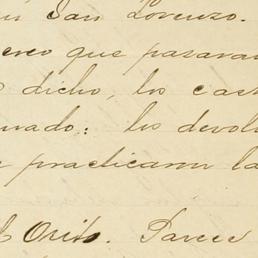 San Lorenzo.
creo que pasaran
dicho, los cas
nado: los devol
practicaron la
Orito. Parece